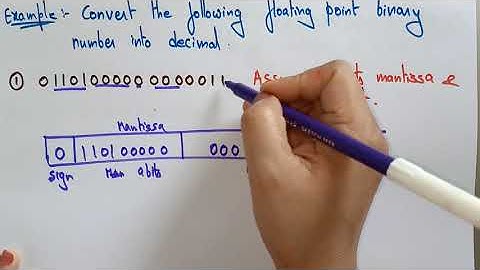 Example:- Convert the following floating point binary
number into decimal.
① 0 1 1 0 1 0 0 0 0 0 0 0 0 0 0 0 1 1 mantissa &
Mantissa
0 1 1 0 1 0 0 0 0 0 0 0 0
sign bits